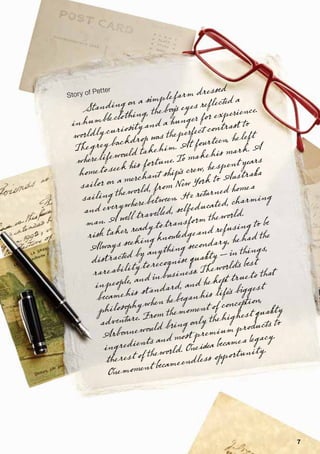 POST CARD
Story of Petter
Standing on a simple farm dressed
in humble clothing, the boy's eyes reflected a
worldly curiosity and a hunger for experience.
The grey backdrop was the perfect contrast to
where life would take him. At fourteen, he left
home to seek his fortune. To make his mark. A
sailor on a merchant ship's crew, he spent years
sailing the world, from New York to Australia
and everywhere between. He returned home a
man. A well travelled, self educated, charming
risk taker ready to transform the world.
Always seeking knowledge and refusing to be
distracted by anything secondary, he had the
rare ability to recognise quality – in things,
in people, and in business. The world's best
became his standard, and he kept true to that
philosophy when he began his life's biggest
adventure. From the moment of conception,
Arborne would bring only the highest quality
ingredients and most premium products to
the rest of the world. One idea became a legacy.
One moment became endless opportunity.
7